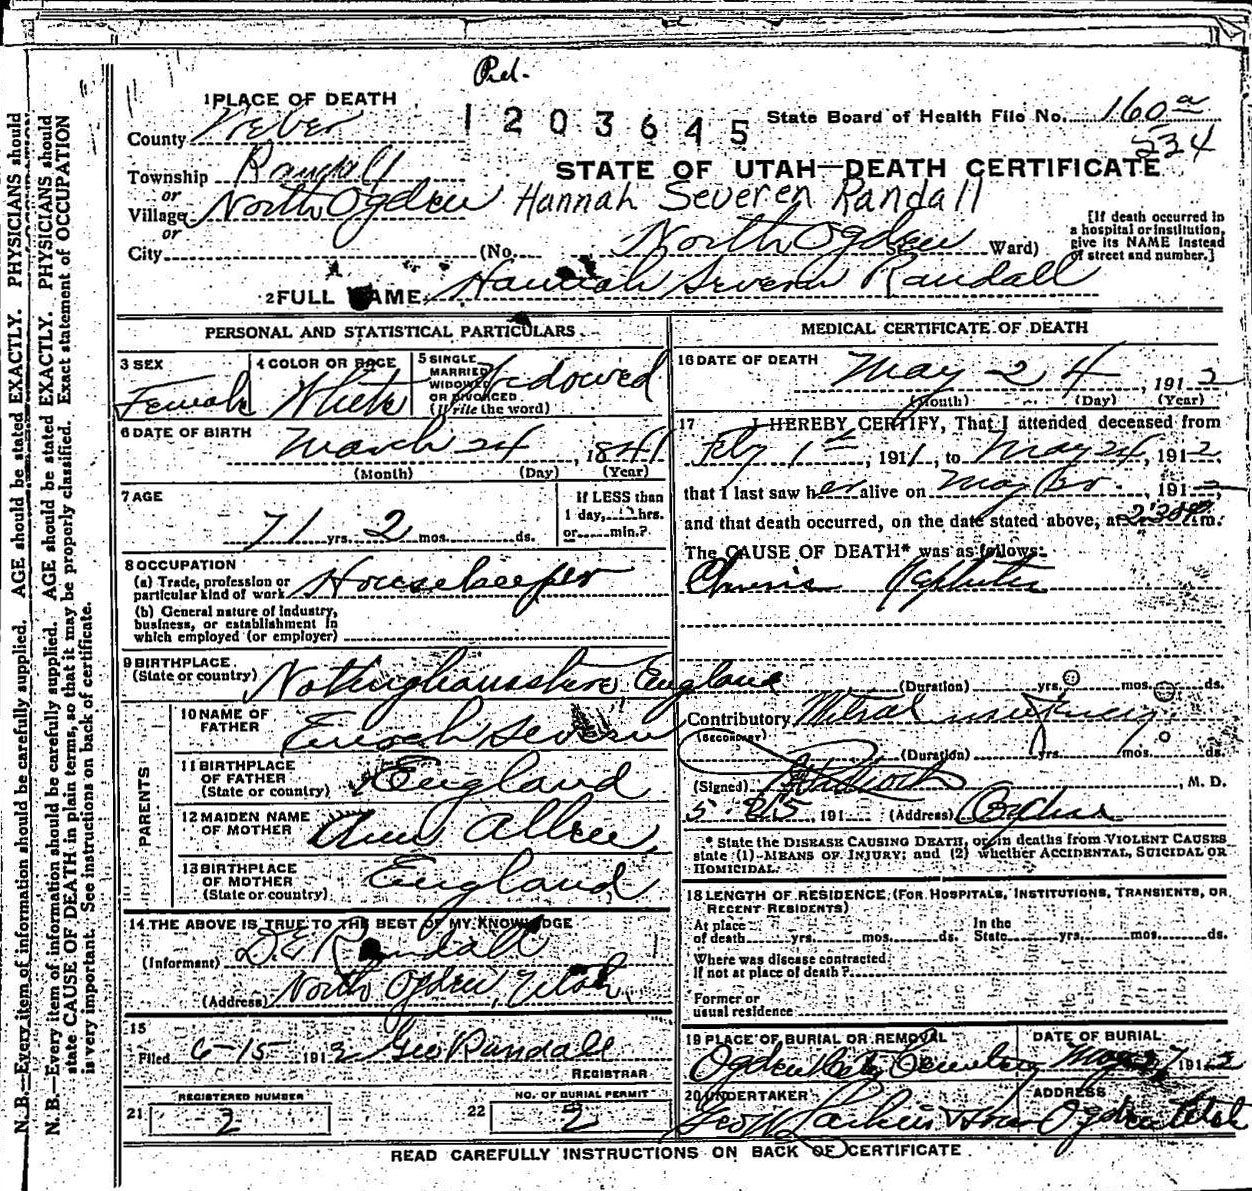 Rd.
1 PLACE OF DEATH
1203645
State Board of Health File No. 160 a
534
County Weber
STATE OF UTAH—DEATH CERTIFICATE
Township Randall
or
Village North Ogden Hannah Severen Randall
or
City (No. North Ogden Ward)
[If death occurred in
a hospital or institution,
give its NAME instead
of street and number.]
2 FULL NAME Hannah Severn Randall
PERSONAL AND STATISTICAL PARTICULARS
3 SEX
Female
4 COLOR OR RACE
White
5 SINGLE
MARRIED
WIDOWED
OR DIVORCED
(Write the word)
Widowed
6 DATE OF BIRTH
March 24, 1841
(Month) (Day) (Year)
7 AGE
71 yrs. 2 mos. ds.
If LESS than
1 day, hrs.
or min.?
8 OCCUPATION
(a) Trade, profession or
particular kind of work Housekeeper
(b) General nature of industry,
business, or establishment in
which employed (or employer)
9 BIRTHPLACE
(State or country) Nottinghamshire England
PARENTS
10 NAME OF
FATHER Enoch Severn
11 BIRTHPLACE
OF FATHER
(State or country) England
12 MAIDEN NAME
OF MOTHER Ann Allen
13 BIRTHPLACE
OF MOTHER
(State or country) England
14 THE ABOVE IS TRUE TO THE BEST OF MY KNOWLEDGE
(Informant) D. E. Randall
(Address) North Ogden, Utah
15
Filed 6-15 1912 Geo Randall
REGISTRAR
21 REGISTERED NUMBER
2
22 NO. OF BURIAL PERMIT
2
MEDICAL CERTIFICATE OF DEATH
16 DATE OF DEATH
May 24, 1912
(Month) (Day) (Year)
17 I HEREBY CERTIFY, That I attended deceased from
Feby 1st, 1911, to May 24, 1912,
that I last saw her alive on May, 191
and that death occurred, on the date stated above, at 2:30 m.
The CAUSE OF DEATH* was as follows:
(Duration) yrs. mos. ds.
Contributory Mitral insufficiency
(SECONDARY)
(Duration) yrs. mos. ds.
(Signed) , M. D.
5-25, 191 (Address) Ogden
* State the DISEASE CAUSING DEATH, or, in deaths from VIOLENT CAUSES
state (1) MEANS OF INJURY; and (2) whether ACCIDENTAL, SUICIDAL OR
HOMICIDAL.
18 LENGTH OF RESIDENCE (FOR HOSPITALS, INSTITUTIONS, TRANSIENTS, OR
RECENT RESIDENTS)
At place
of death yrs. mos. ds.
In the
State yrs. mos. ds.
Where was disease contracted
If not at place of death?
Former or
usual residence
19 PLACE OF BURIAL OR REMOVAL
Ogden City Cemetery
DATE OF BURIAL
May 27 1912
20 UNDERTAKER
Geo W Larkin & Sons
ADDRESS
Ogden Utah
READ CAREFULLY INSTRUCTIONS ON BACK OF CERTIFICATE
N. B.—Every item of information should be carefully supplied. AGE should be stated EXACTLY. PHYSICIANS should
N. B.—Every item of information should be carefully supplied. AGE should be stated EXACTLY. PHYSICIANS should
state CAUSE OF DEATH in plain terms, so that it may be properly classified. Exact statement of OCCUPATION
is very important. See instructions on back of certificate.